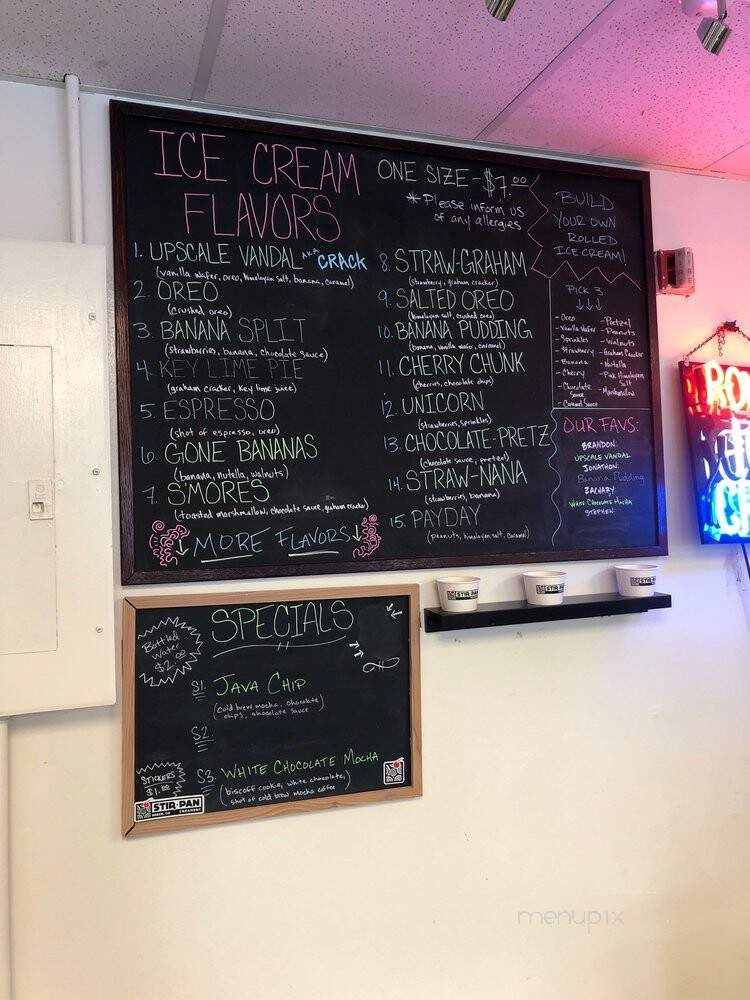 ICE CREAM
FLAVORS
1. UPSCALE VANDAL AKA CRACK
(vanilla wafer, oreo, himalayan salt, banana, caramel)
2. OREO
(crushed oreo)
3. BANANA SPLIT
(strawberries, banana, chocolate sauce)
4. KEY LIME PIE
(graham cracker, key lime juice)
5. ESPRESSO
(shot of espresso, oreo)
6. GONE BANANAS
(banana, nutella, walnuts)
7. S'MORES
(toasted marshmallow, chocolate sauce, graham cracker)
MORE FLAVORS
ONE SIZE - $7.00
* Please inform us
of any allergies
8. STRAW-GRAHAM
(strawberry, graham cracker)
9. SALTED OREO
(himalayan salt, crushed oreo)
10. BANANA PUDDING
(banana, vanilla wafer, caramel)
11. CHERRY CHUNK
(cherries, chocolate chips)
12. UNICORN
(strawberries, sprinkles)
13. CHOCOLATE-PRETZ
(chocolate sauce, pretzel)
14. STRAW-NANA
(strawberries, banana)
15. PAYDAY
(peanuts, himalayan salt, caramel)
BUILD
YOUR OWN
ROLLED
ICE CREAM!
PICK 3
- Oreo
- Vanilla Wafer
- Sprinkles
- Strawberry
- Banana
- Cherry
- Chocolate
Sauce
- Caramel Sauce
- Pretzel
- Peanuts
- Walnuts
- Graham Cracker
- Nutella
- Pink Himalayan
Salt
- Marshmallow
OUR FAVS:
BRANDON:
UPSCALE VANDAL
JONATHON:
Banana Pudding
ZACHARY:
White Chocolate Mocha
STEPHEN:
SPECIALS
Bottled
Water
$2.00
S1. JAVA CHIP
(cold brew mocha, chocolate
chips, chocolate sauce)
S2
S3. WHITE CHOCOLATE MOCHA
(biscoff cookie, white chocolate,
shot of cold brew mocha coffee)
STICKERS
$1.00
STIR-PAN
CREAMERY
STIR-PAN
STIR-PAN
STIR-PAN
menupix